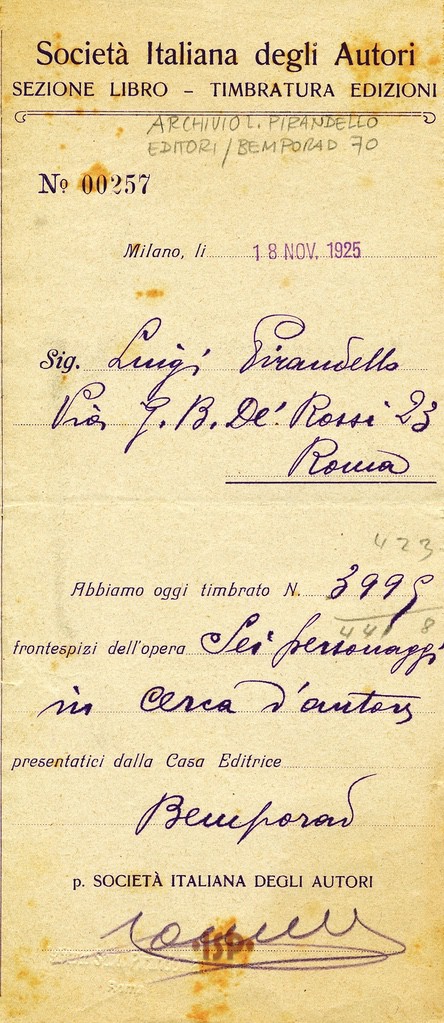 Società Italiana degli Autori
SEZIONE LIBRO – TIMBRATURA EDIZIONI
ARCHIVIO L. PIRANDELLO
EDITORI / BEMPORAD 70
Nº 00257
Milano, li 18 NOV. 1925
Sig. Luigi Pirandello
Via G. B. De' Rossi 23
Roma
423
Abbiamo oggi timbrato N. 3995
441 8
frontespizi dell'opera Sei personaggi
in cerca d'autore
presentatici dalla Casa Editrice
Bemporad
p. SOCIETÀ ITALIANA DEGLI AUTORI